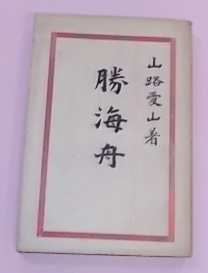 山路愛山著
勝海舟